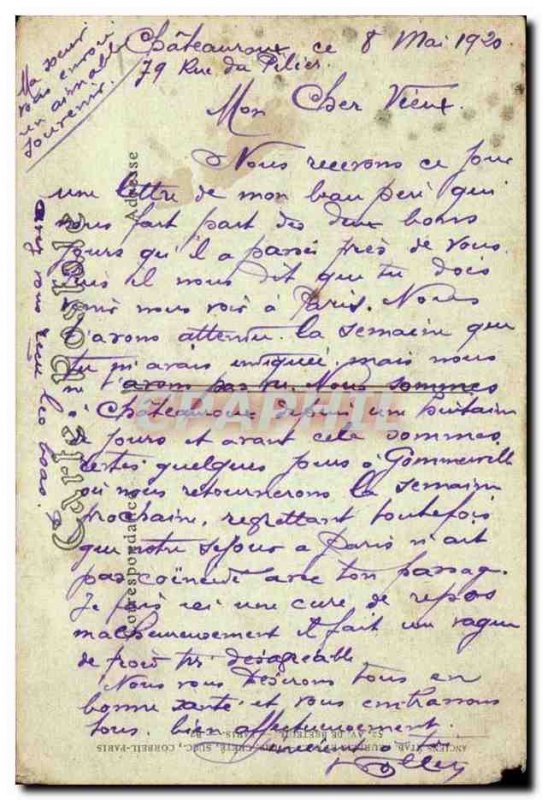 Châteauroux ce 8 Mai 1920.
79 Rue du Pilier.
Ma sœur
vous envoie
un aimable
souvenir.
Mon Cher Vieux.
Nous recevons ce jour
une lettre de mon beau père qui
nous fait part des deux bons
jours qu'il a passé près de vous
puis il nous dit que tu dois
venir nous voir à Paris. Nous
t'avons attendu la semaine que
tu m'avais indiquée mais nous
n t'avons pas vu. Nous sommes
à Châteauroux depuis une huitaine
de jours et avant cela sommes
restés quelques jours à Gommerville
où nous retournerons la semaine
prochaine, regrettant toutefois
que notre séjour à Paris n'ait
pas coïncidé avec ton passage.
Je fais ici une cure de repos
malheureusement il fait un vague
de froid très désagréable.
Nous vous désirons tous en
bonne santé et vous embrassons
tous bien affectueusement.
avez vous reçu les
Carte Postale
Correspondance
Adresse
CPAPHIL
ANCIENS ETAB. NEURDEIN ET CIE, CRÉTÉ, SUCC, CORBEIL-PARIS
52, AV. DE BRETEUIL - PARIS